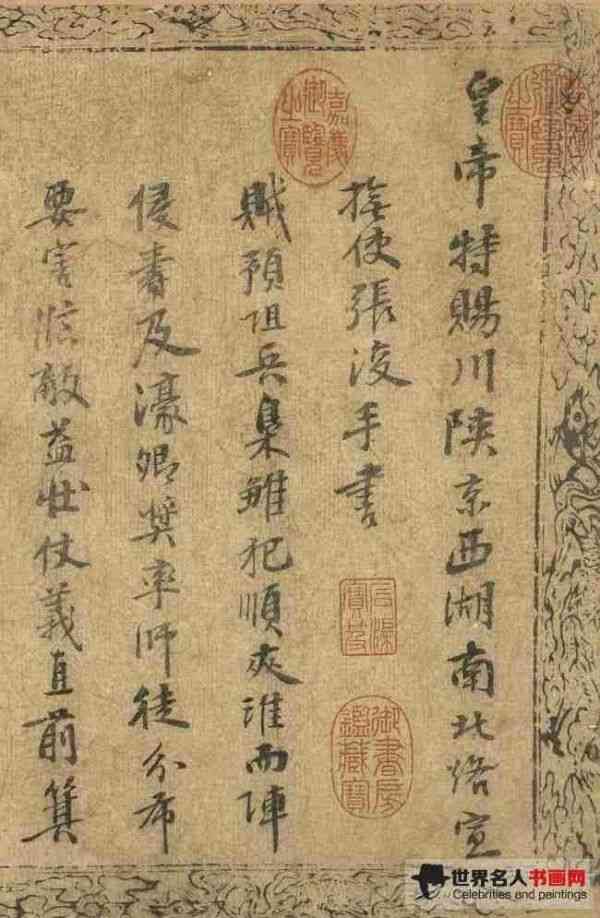 皇帝特賜川陝京西湖南北路宣
撫使張浚手書
賊預阻兵梟雛犯順夾淮而陣
侵壽及濠卿獎率師徒分布
要害臨敵益壯仗義直前箕
嘉慶御覽之寶
石渠寶笈
御書房鑑藏寶
世界名人书画网
Celebrities and paintings